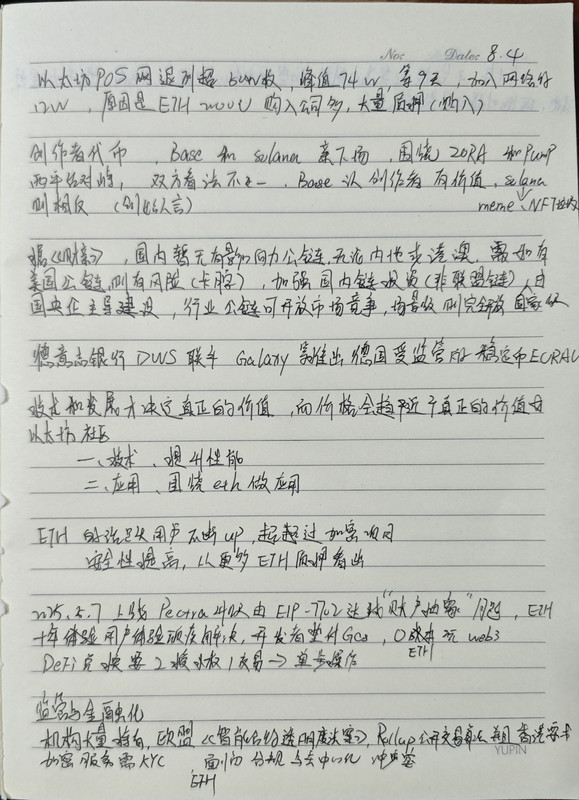 No: Date: 8.4
以太坊POS网退列超 60W枚，峰值74W，等9天，加入网络约
12W，原因是ETH 购入公司多，大量质押(购入)
创作者代币，Base和solana亲下场，围绕ZORA和PUMP
两平台对峙，双方看法不一，Base认创作者有价值，solana
则相反(创始人言) meme、NFT垃圾
据《财》，国内暂无有影响力公链，无论内地或港澳，需如有
美国公链则有风险(卡脖)，加强国内链投资(非联盟链)，由
国央企主导建设，行业公链可开放市场竞争，场景级则完全放
德意志银行DWS联手Galaxy 推出德国受监管的稳定币EURAU
技术和发展才决定真正的价值，而价格会趋近于真正的价值
以太坊社区
一、技术、提升性能
二、应用、围绕eth做应用
ETH 的 用户不断up，超过加密项目
安全性提高，从更多ETH质押看出
2025.5.7上线Pectra升级由EIP-7702达到“账户抽象”，ETH
十年体验用户体验 解决，开发者垫付Gas，0 ETH 玩web3
DeFi 2 1交易→单步操作
监管与金融化
机构大量持有，欧盟《智能合约透明度法案》，Rollup公开交易 香港要求
加密服务需KYC ETH 面临合规与去中心化冲
YUPIN